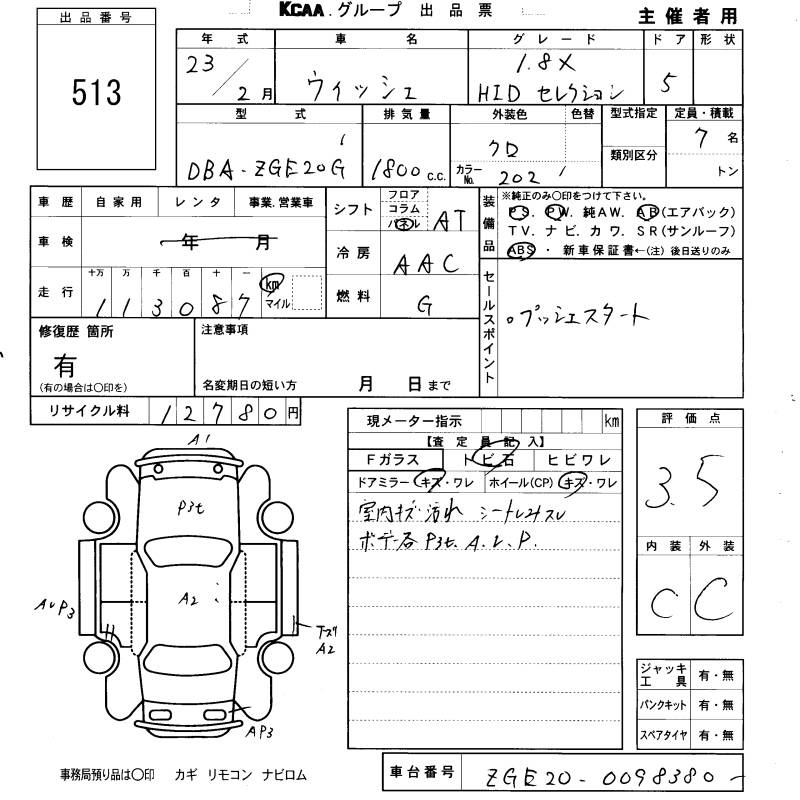 KCAA.グループ 出品票
主催者用
出品番号
513
年式 車名 グレード ドア 形状
23/2月 ウィッシュ 1.8X HIDセレクション 5
型式 排気量 外装色 色替 型式指定 定員・積載
類別区分
DBA-ZGE20G 1800c.c. クロ カラーNo. 202 7名
トン
車歴 自家用 レンタ 事業.営業車
車検 年 月
走行 十万 万 千 百 十 一
113087 km マイル
シフト フロア コラム パネル AT
冷房 AAC
燃料 G
装備品
※純正のみ○印をつけて下さい。
PS. PW. 純AW. AB(エアバック)
TV. ナビ. カワ. SR(サンルーフ)
ABS ・ 新車保証書←(注) 後日送りのみ
セールスポイント
。プッシュスタート
修復歴 箇所
有
(有の場合は○印を)
注意事項
名変期日の短い方 月 日まで
リサイクル料 12780円
現メーター指示 km
【査定員記入】
Fガラス トビ石 ヒビワレ
ドアミラー キズ・ワレ ホイール(CP) キズ・ワレ
室内キズ・汚れ シートレスレ
ボデー各 P3t. A.U.P.
評価点
3.5
内装 外装
C C
A1
P3t
A2
AUP3
下ズリ
A2
AP3
ジャッキ工具 有・無
パンクキット 有・無
スペアタイヤ 有・無
事務局預り品は○印 カギ リモコン ナビロム
車台番号 ZGE20-0098380-